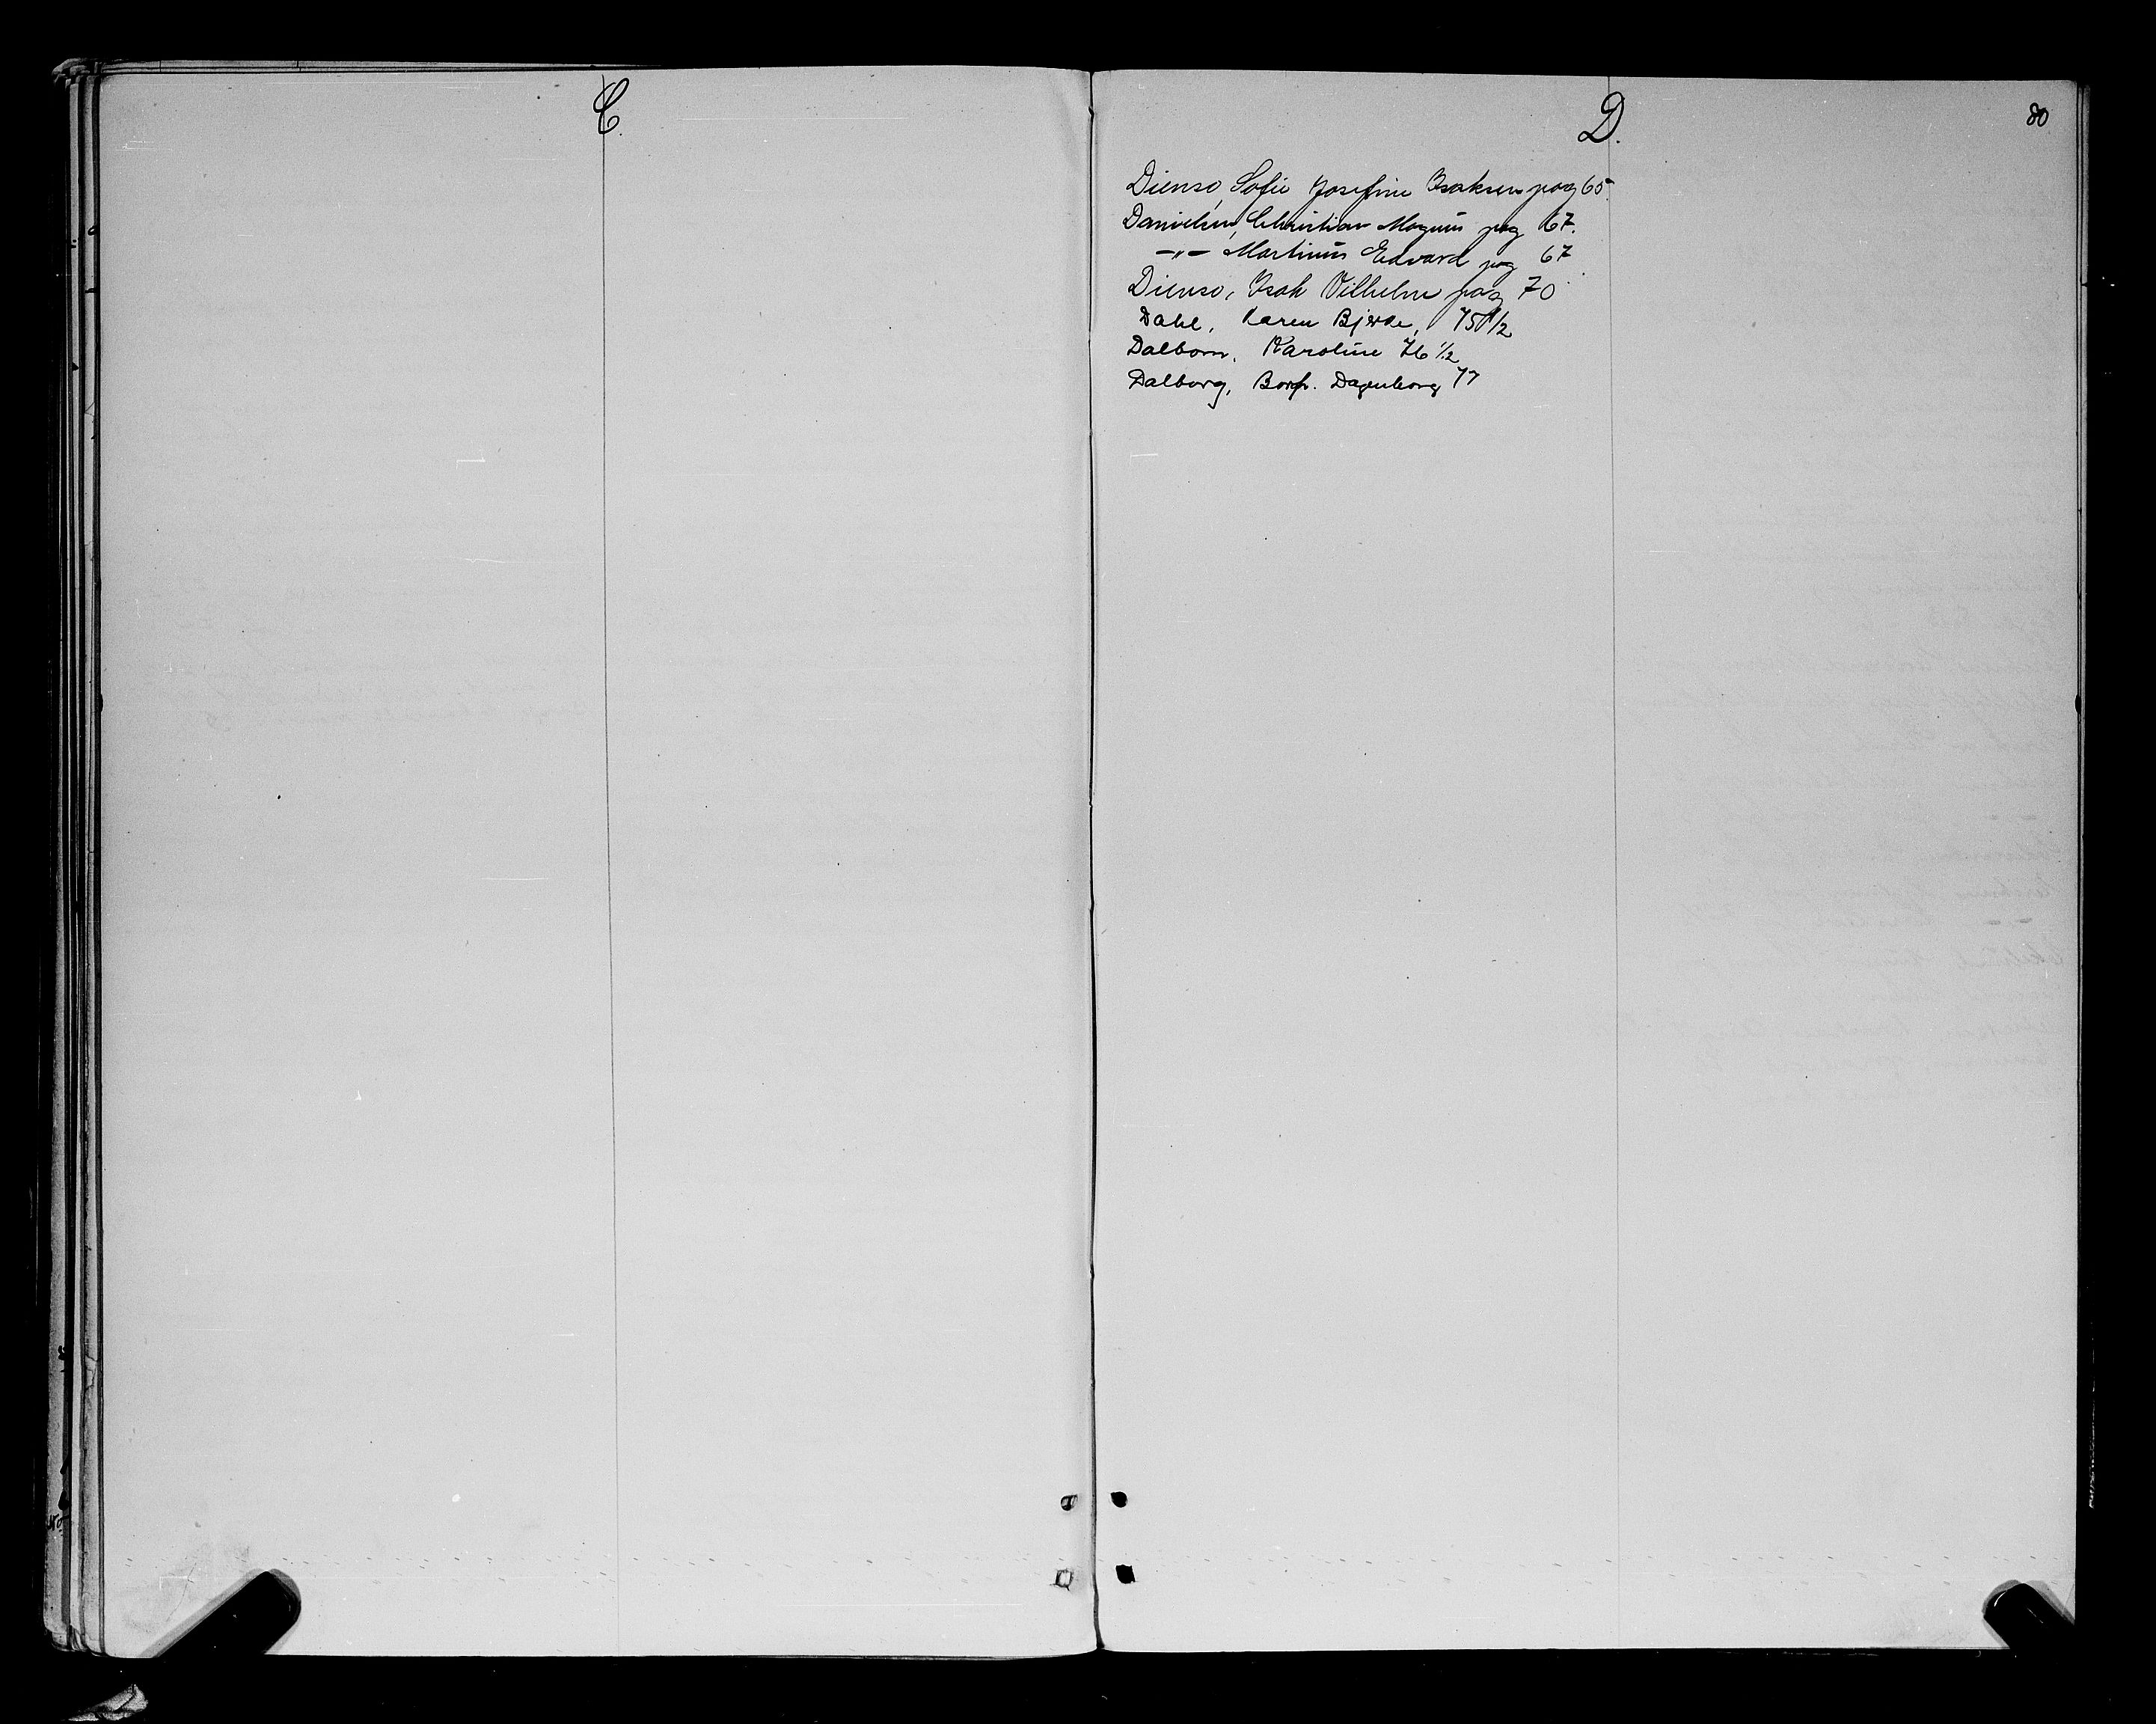 C.
D.
80
Dienso, Sofie Josefine Isaksen pag 65.
Danielsen, Christian Magnus pag 67.
-"- Martinus Edvard pag 67
Dienso, Isak Vilhelm pag 70
Dahl, Karen Bjerke, 75 1/2
Dalborn, Karoline 76 1/2
Dalborg, Dagenborg 77